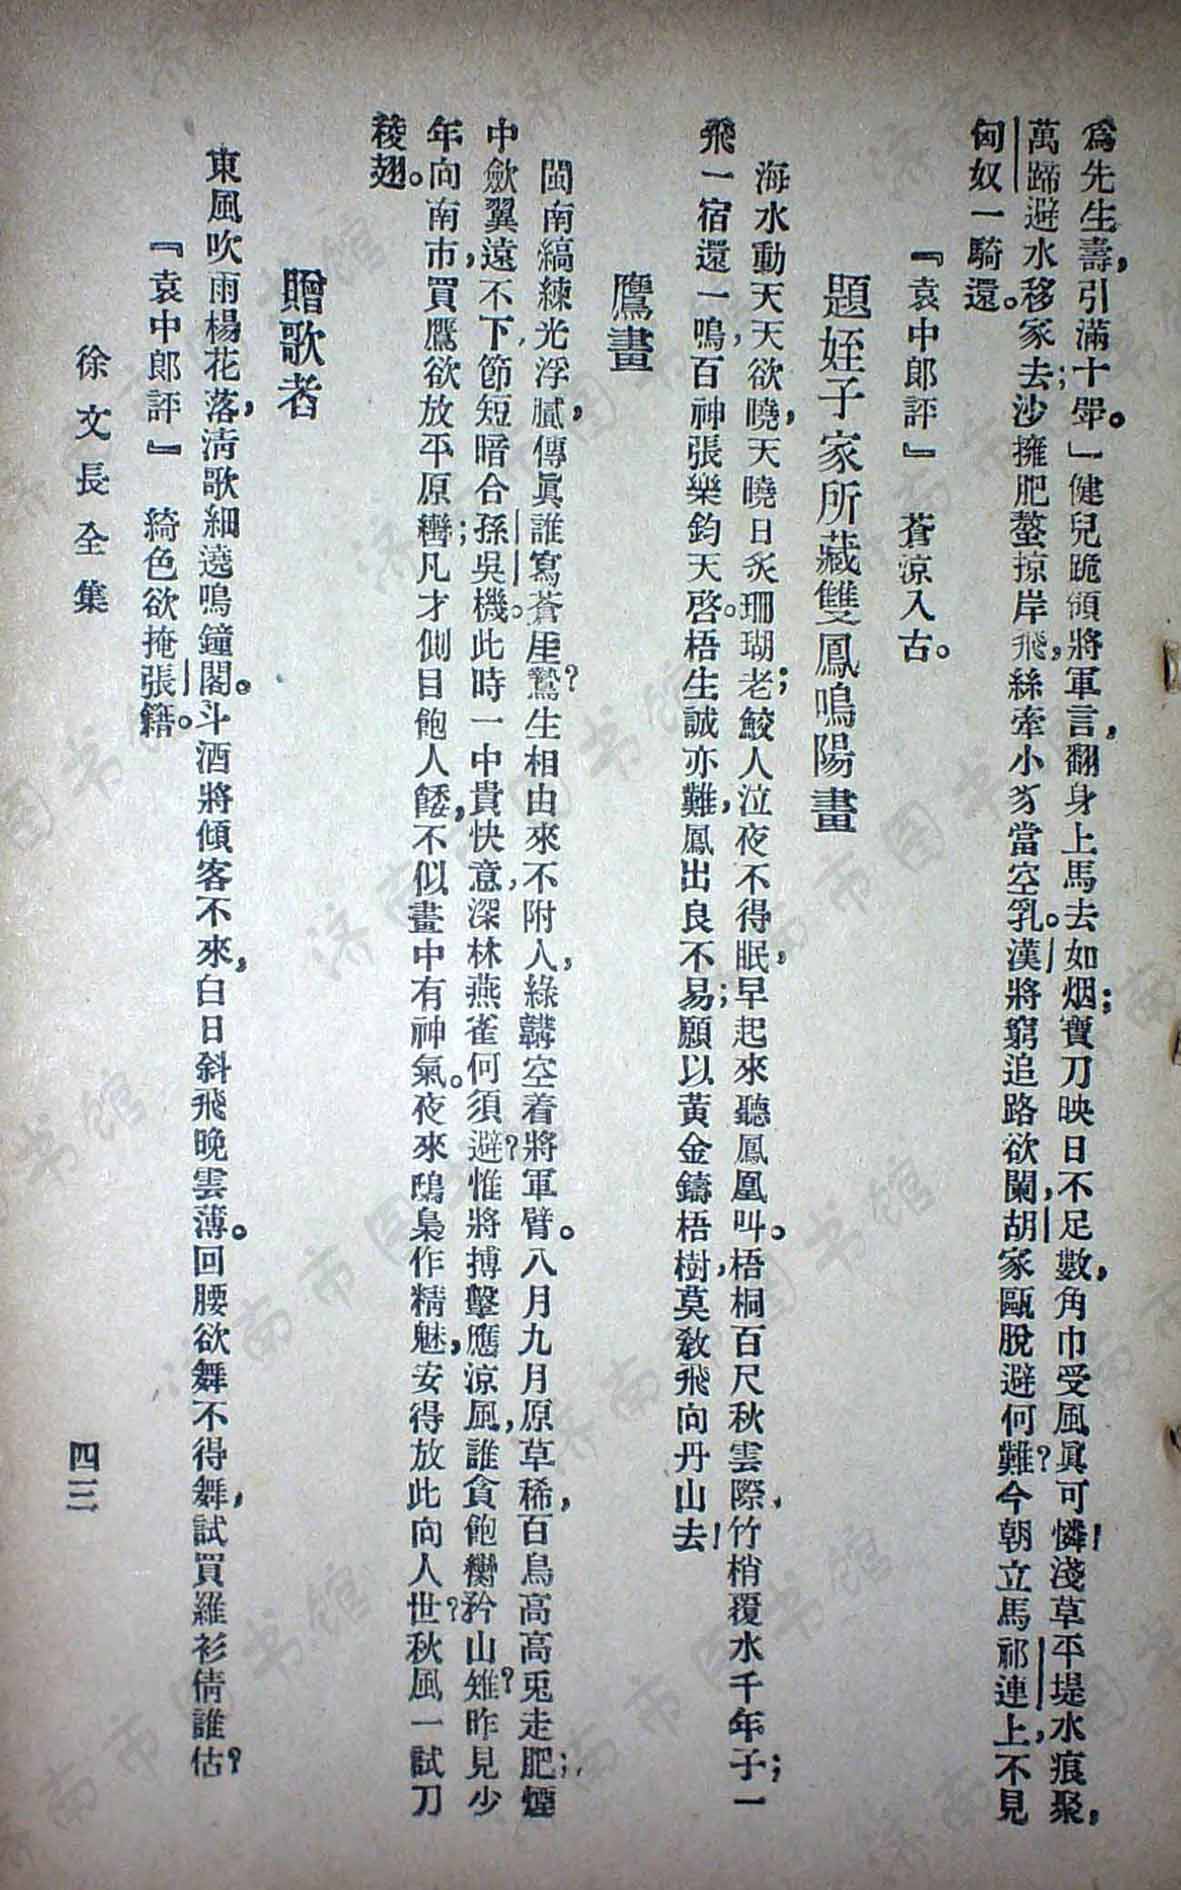 爲先生壽，引滿十斝。」健兒跪領將軍言，翻身上馬去如烟；寶刀映日不足數，角巾受風眞可憐！淺草平堤水痕聚，
萬蹄避水移家去；沙擁肥螯掠岸飛，絲牽小豸當空乳。漢將窮追路欲闌，胡家甌脫避何難？今朝立馬祁連上，不見
匈奴一騎還。
『袁中郎評』　蒼涼入古。
題姪子家所藏雙鳳鳴陽畫
海水動天天欲曉，天曉日炙珊瑚老；鮫人泣夜不得眠，早起來聽鳳凰叫。梧桐百尺秋雲際，竹梢覆水千年子；一
飛一宿還一鳴，百神張樂鈞天啓。梧生誠亦難，鳳出良不易；願以黃金鑄梧樹，莫敎飛向丹山去！
鷹畫
閩南縞練光浮膩，傳眞誰寫蒼厓鷙？生相由來不附人，綠韝空着將軍臂。八月九月原草稀，百鳥高高兎走肥；煙
中歛翼遠不下，節短暗合孫吳機。此時一中貴快意，深林燕雀何須避？惟將搏擊應涼風，誰貪飽臠矜山雉？昨見少
年向南市，買鷹欲放平原轡；凡才側目飽人餧，不似畫中有神氣。夜來鴟梟作精魅，安得放此向人世？秋風一試刀
稜翅。
贈歌者
東風吹雨楊花落，淸歌細遶鳴鐘閣。斗酒將傾客不來，白日斜飛晚雲薄。回腰欲舞不得舞，試買羅衫倩誰估？
『袁中郎評』　綺色欲掩張籍。
徐文長全集
四三
济南市图书馆